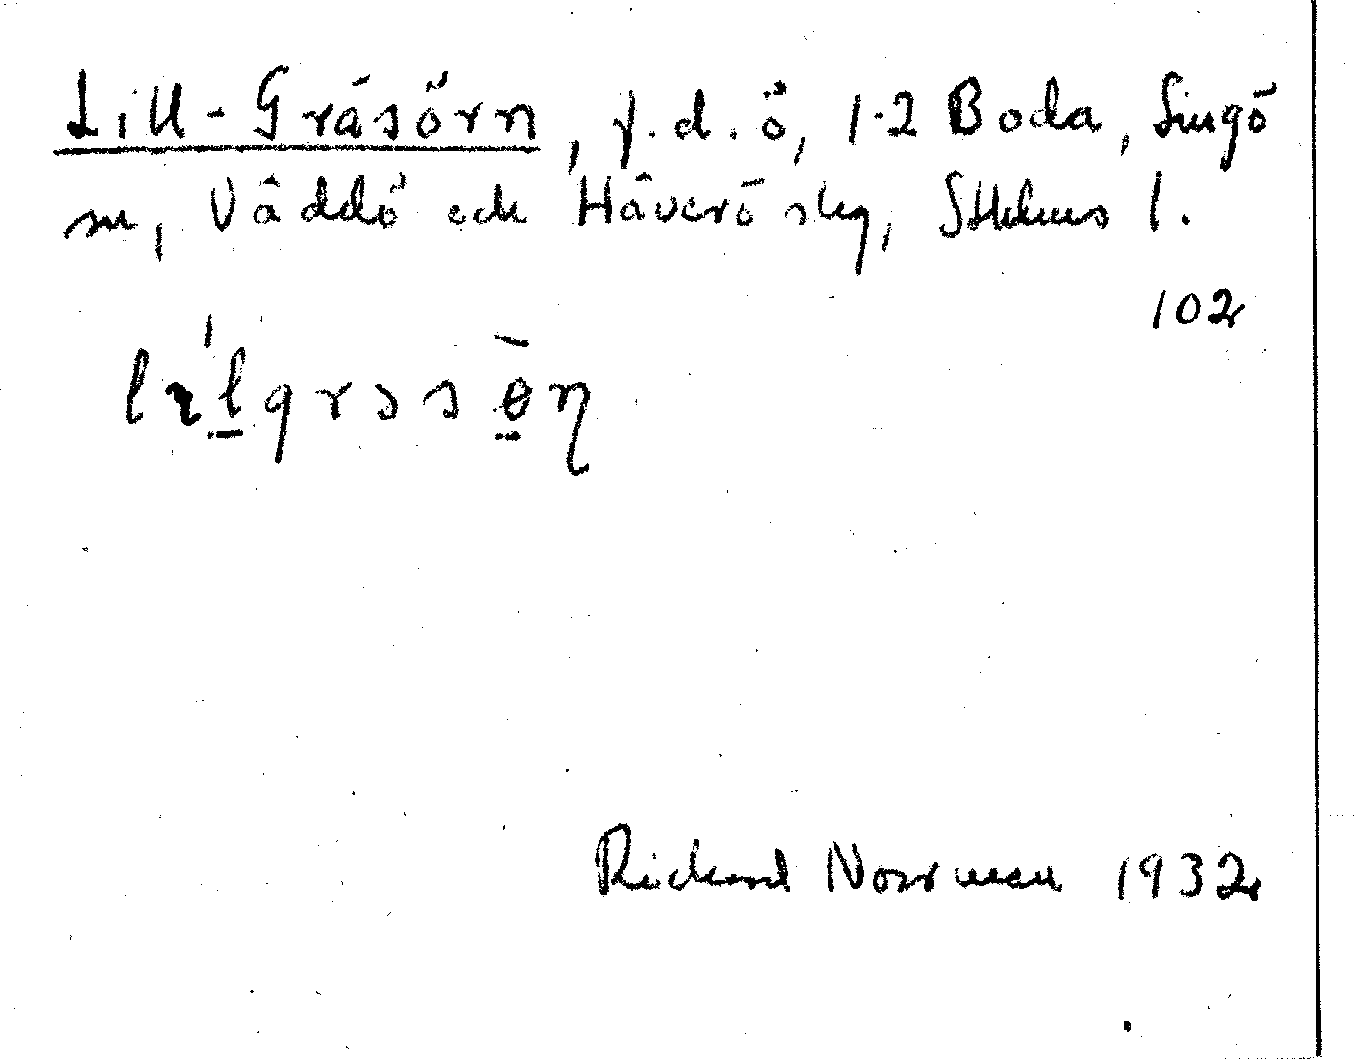 Lill-Gråsörn, f.d. ö, 1-2 Boda, Singö
sn, Väddö och Häverö skg, Sthlms l.
102
Richard Norrman 1932